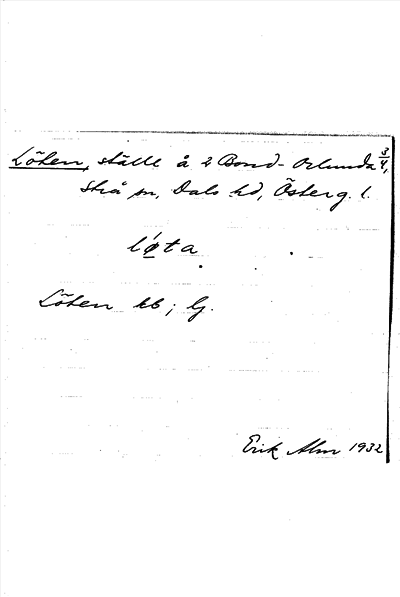 Löten, ställe å 2 Bond-Orlunda 3/4,
Strå sn, Dals hd, Österg. l.
lø´ta
Löten kb; Gj.
Erik Alm 1932